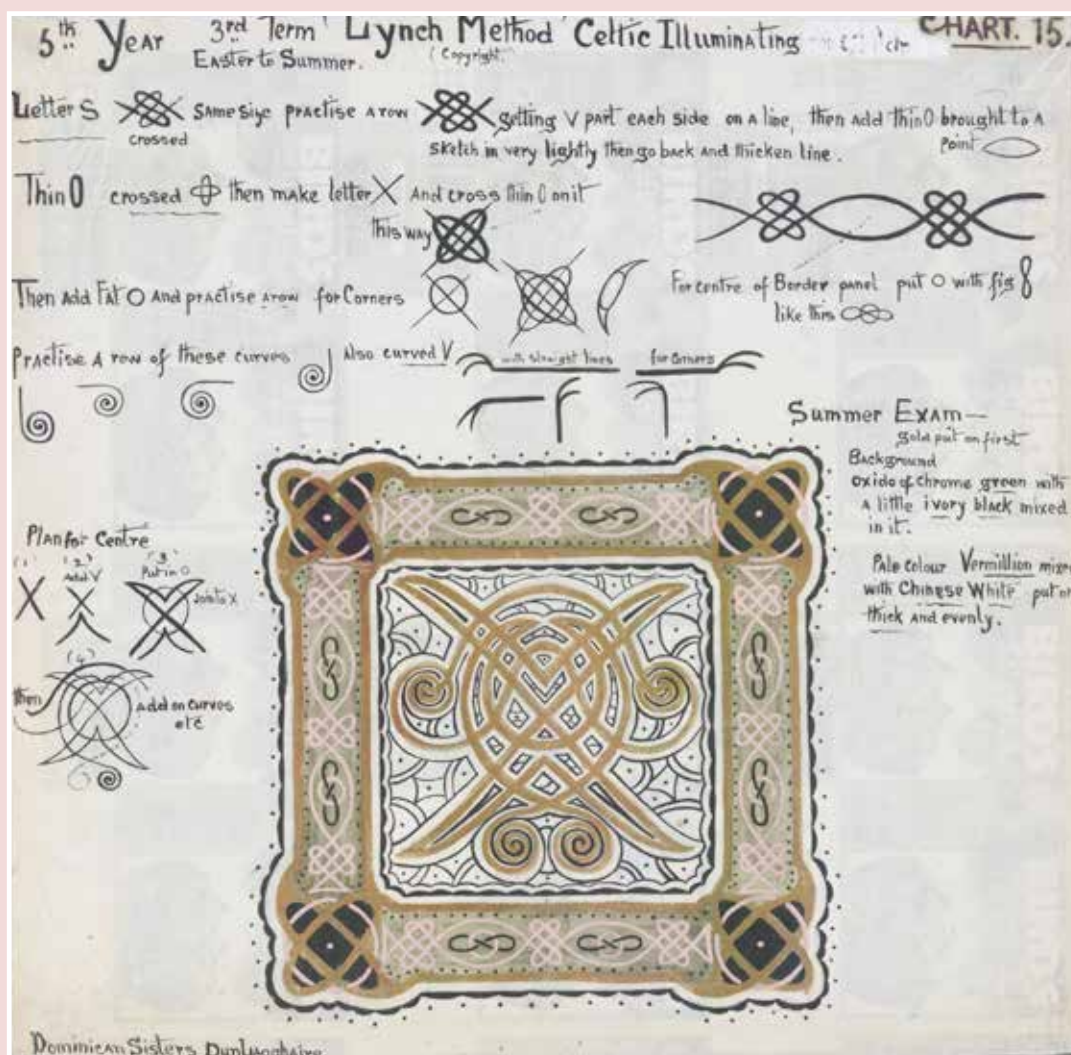 5th Year 3rd Term 'Lynch Method' Celtic Illuminating CHART. 15.
Easter to Summer. (Copyright.
Letter S crossed same size practise a row getting V part each side on a line, then add thin O brought to a point
sketch in very lightly then go back and thicken line.
Thin O crossed then make letter X and cross thin O on it
this way
Then add Fat O and practise a row for Corners
For centre of Border panel put O with fig 8
like this
Practise a row of these curves also curved V with straight lines for corners
Summer Exam—
gold put on first
Background
oxide of chrome green with
a little ivory black mixed
in it.
Pale colour Vermillion mixe
with Chinese White put on
thick and evenly.
Plan for Centre
(1) (2) (3)
Add V Put in O
Join to X
(4)
then add on curves
etc
Dominican Sisters Dunlaoghaire